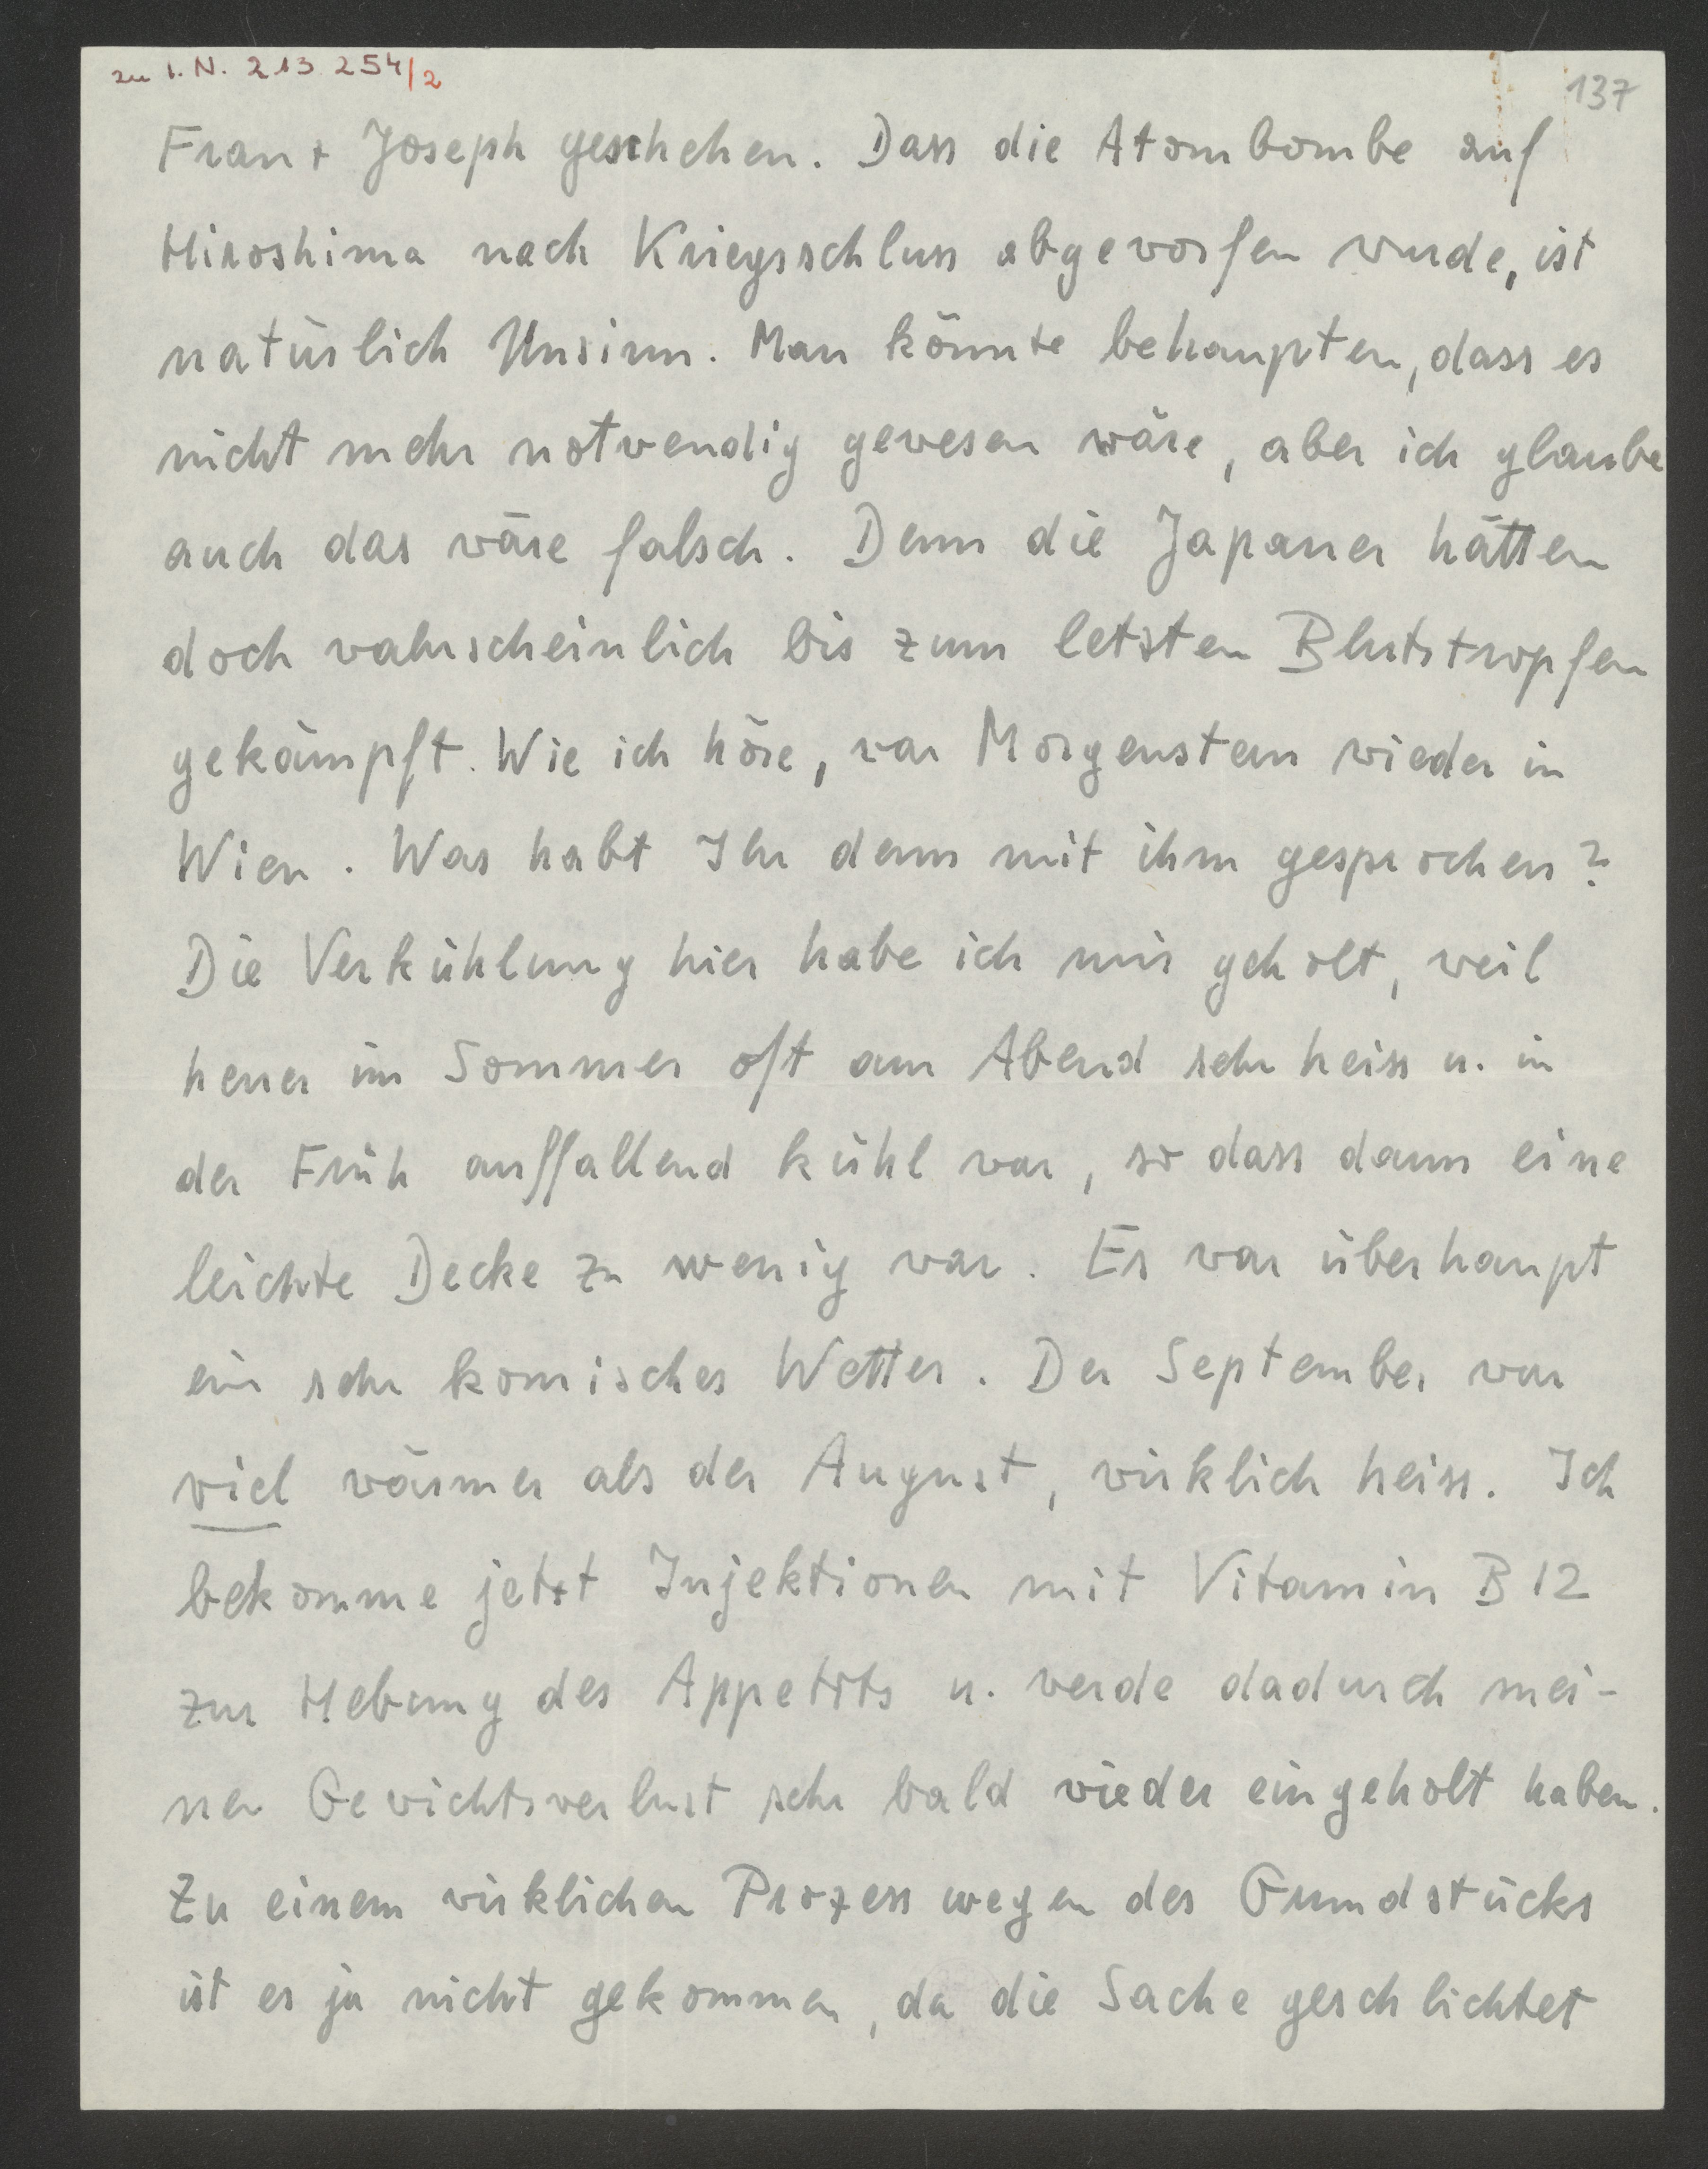 zu I. N. 213 254/2
137
Franz Joseph geschehen. Dass die Atombombe auf
Hiroshima nach Kriegsschluss abgeworfen wurde, ist
natürlich Unsinn. Man könnte behaupten, dass es
nicht mehr notwendig gewesen wäre, aber ich glaube
auch das wäre falsch. Denn die Japaner hätten
doch wahrscheinlich bis zum letzten Blutstropfen
gekämpft. Wie ich höre, war Morgenstern wieder in
Wien. Was habt Ihr denn mit ihm gesprochen?
Die Verkühlung hier habe ich mir geholt, weil
heuer im Sommer oft am Abend sehr heiss u. in
der Früh auffallend kühl war, so dass dann eine
leichte Decke zu wenig war. Es war überhaupt
ein sehr komisches Wetter. Der September war
viel wärmer als der August, wirklich heiss. Ich
bekomme jetzt Injektionen mit Vitamin B 12
zur Hebung des Appetits u. werde dadurch mei-
nen Gewichtsverlust sehr bald wieder eingeholt haben.
Zu einem wirklichen Prozess wegen des Grundstücks
ist es ja nicht gekommen, da die Sache geschlichtet